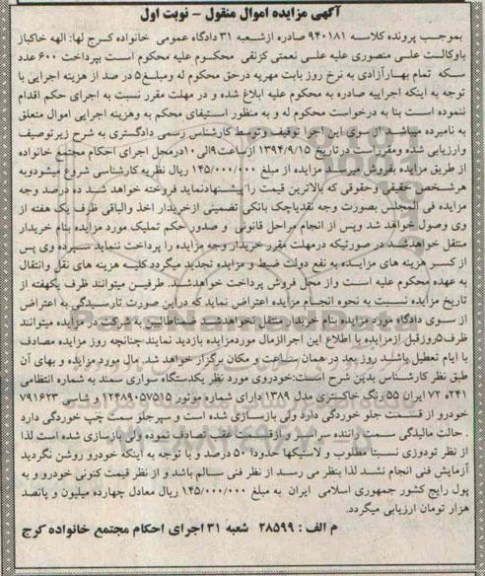 آگهی مزایده اموال منقول - نوبت اول
بموجب پرونده کلاسه ۹۴۰۱۸۱ صادره ازشعبه ۳۱ دادگاه عمومی خانواده کرج لها: الهه خاکباز
باوکالت علی منصوری علیه علی نعمتی کزنقی محکـوم علیه محکوم است بپرداخت ۶۰۰ عدد
سکه تمام بهـارآزادی به نرخ روز بابت مهریه درحق محکوم له ومبلـغ۵ در صد از هزینه اجرایی با
توجه به اینکه اجراییه صادره به محکوم علیه ابلاغ شده و در مهلت مقرر نسبت به اجرای حکم اقدام
ننموده است بنا به درخواست محکوم له و به منظور استیفای محکم به وهزینه اجرایی اموال متعلق
به نامبرده میباشـد از سوی این اجرا توقیف وتوسط کارشناس رسمی دادگستری به شرح زیرتوصیف
وارزیابی شده ومقرراست درتاریخ ۱۳۹۴/۹/۱۵ ازساعت۹الی ۱۰درمحل اجرای احکام مجتمع خانواده
از طریق مزایده بفروش میرسـد مزایده از مبلغ ۱۴۵/۰۰۰/۰۰۰ ریال نظریه کارشناسی شروع میشودوبه
هرشـخص حقیقی وحقوقی که بالاترین قیمت را پیشنهادنماید فروخته خواهد شـد ده درصد وجه
مزایده فی المجلس بصورت وجه نقدیاچک بانکی تضمینی ازخریدار اخذ والباقی ظرف یک هفته از
وی وصول خواهد شد وپس از انجام مراحل قانونی و صدور حکم تملیک مورد مزایده بنام خریدار
منتقل خواهدشـد در صورتیکه درمهلت مقرر خریدار وجه مزایده را پرداخت ننماید سپرده وی پس
از کسـر هزینه های مزایـده به نفع دولت ضبط و مزایده تجدید میگردد کلیه هزینه های نقل وانتقال
به عهده محکوم علیه است واز محل فروش پرداخت خواهدشـد. طرفیـن میتوانند ظرف یکهفته از
تاریخ مزایده نسبت به نحوه انجـام مزایده اعتراض نمایند که دراین صورت تارسـیدگی به اعتراض
از سـوی دادگاه مورد مزایده بنام خریدار منتقل نخواهدشـد ضمناطالبین به شرکت در مزایده میتوانند
ظرف۵روزقبل ازمزایده با اطلاع این اجراازمال موردمزایده بازدید نمایند چنانچه روز مزایده مصادف
با ایام تعطیل باشد روز بعد در همان ساعت و مکان برگزار خواهد شد. مال مورد مزایده و بهای آن
طبق نظر کارشناس بدین شرح است:خودروی مورد نظر یکدستگاه سواری سمند به شماره انتظامی
۲۴۱ه ۷۲ ایران ۵۵ رنگ خاکستری مدل ۱۳۸۹ دارای شماره موتور ۱۲۴۸۹۰۵۷۵۱۵ و شاسی ۷۹۱۶۲۳
خودرو از قسـمت جلو خوردگی دارد ولی بازسازی شده است و سپرجلو سمت چپ خوردگی دارد
. حالت مالیدگی سـمت راننده سر سپر و ازقسمت عقب تصادف نموده ولی بازسازی شده است لذا
از نظر تودوزی نسبتا مطلوب و لاستیکها حدودا ۵۰ درصد و با توجه به اینکه خودرو روشن نگردید
آزمایش فنی انجام نشـد لذا بنظر می رسد از نظر فنی سـالم باشد و از نظر قیمت کنونی خودرو و به
پول رایج کشور جمهوری اسلامی ایران به مبلغ ۱۴۵/۰۰۰/۰۰۰ ریال معادل چهارده میلیون و پانصد
هزار تومان ارزیابی میگردد.
م الف : ۲۸۵۹۹ شعبه ۳۱ اجرای احکام مجتمع خانواده کرج